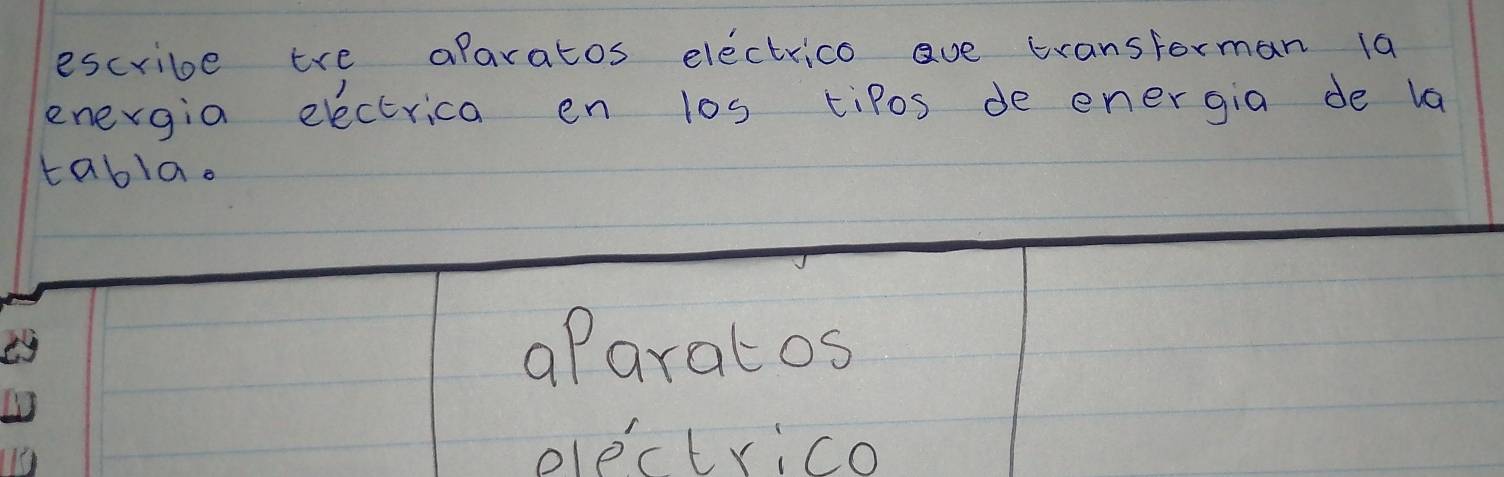 escribe tre aparatos eléctrico que transforman la
energia eléctrica en los tipos de energia de la
tabla.
aparatos
eléctrico